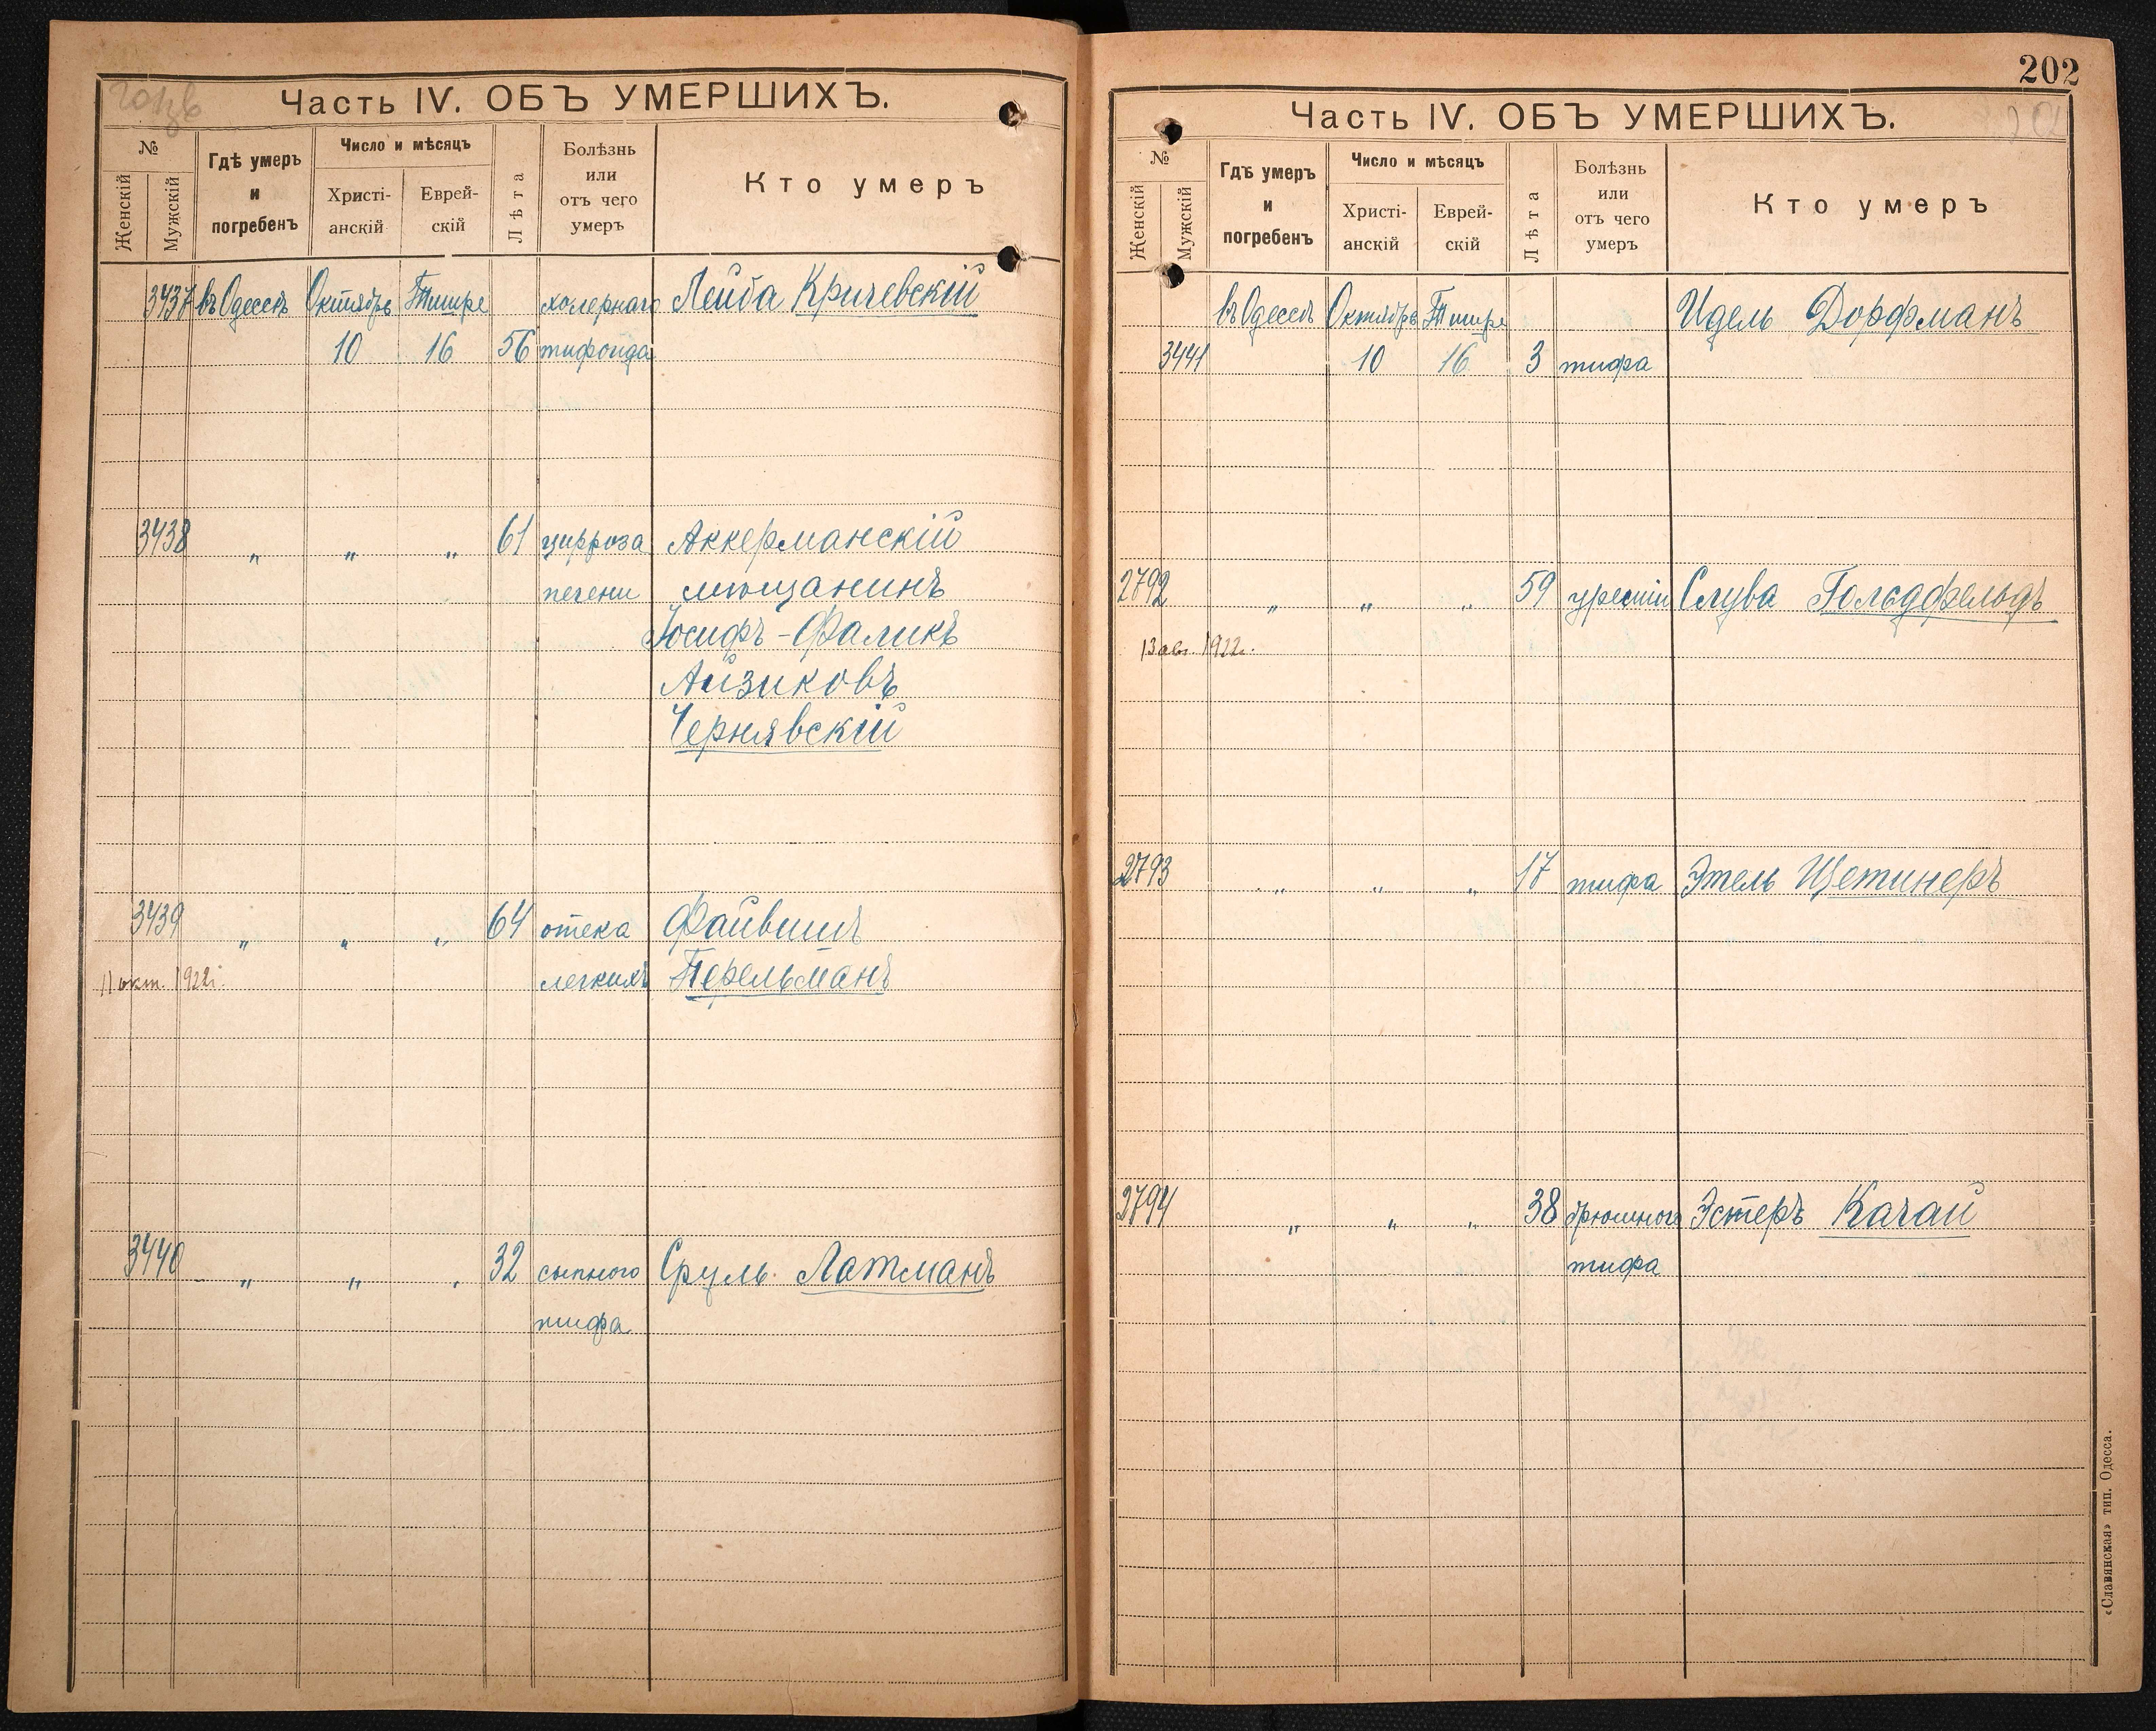 Часть IV. ОБЪ УМЕРШИХЪ.
№
Женскій
Мужскій
Гдѣ умеръ
и
погребенъ
Число и мѣсяцъ
Христі-
анскій
Еврей-
скій
Лѣта
Болѣзнь
или
отъ чего
умеръ
Кто умеръ
3437 въ Одессѣ Октябрь Тишре холернаго Лейба Кричевскій
10 16 56 тифоида
3438 „ „ „ 61 цирроза Аккерманскій
печени мѣщанинъ
Іосифъ-Фаликъ
Айзиковъ
Чернявскій
3439 „ „ „ 64 отека Файвишъ
11 окт. 1922г. легкихъ Перельманъ
3440 „ „ „ 32 сыпного Сруль Латманъ
тифа
202
Часть IV. ОБЪ УМЕРШИХЪ.
№
Женскій
Мужскій
Гдѣ умеръ
и
погребенъ
Число и мѣсяцъ
Христі-
анскій
Еврей-
скій
Лѣта
Болѣзнь
или
отъ чего
умеръ
Кто умеръ
въ Одессѣ Октябрь Тишре Идель Дорфманъ
3441 10 16 3 тифа
2792 „ „ „ 59 уреміи Слува Гольдфельдъ
13 авг. 1922г.
2793 „ „ „ 17 тифа Этель Щетинеръ
2794 „ „ „ 38 брюшного Эстеръ Качай
тифа
«Славянская» тип. Одесса.